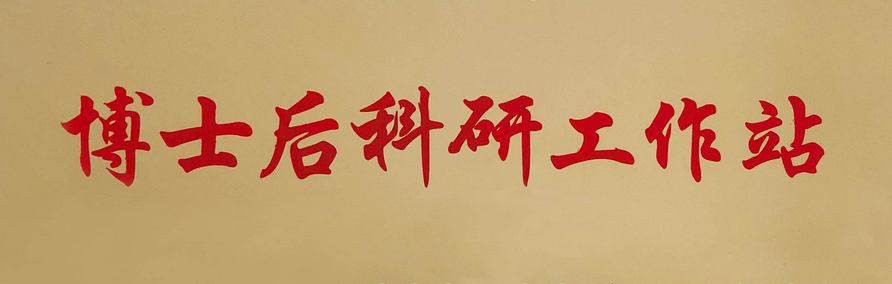 博士后科研工作站